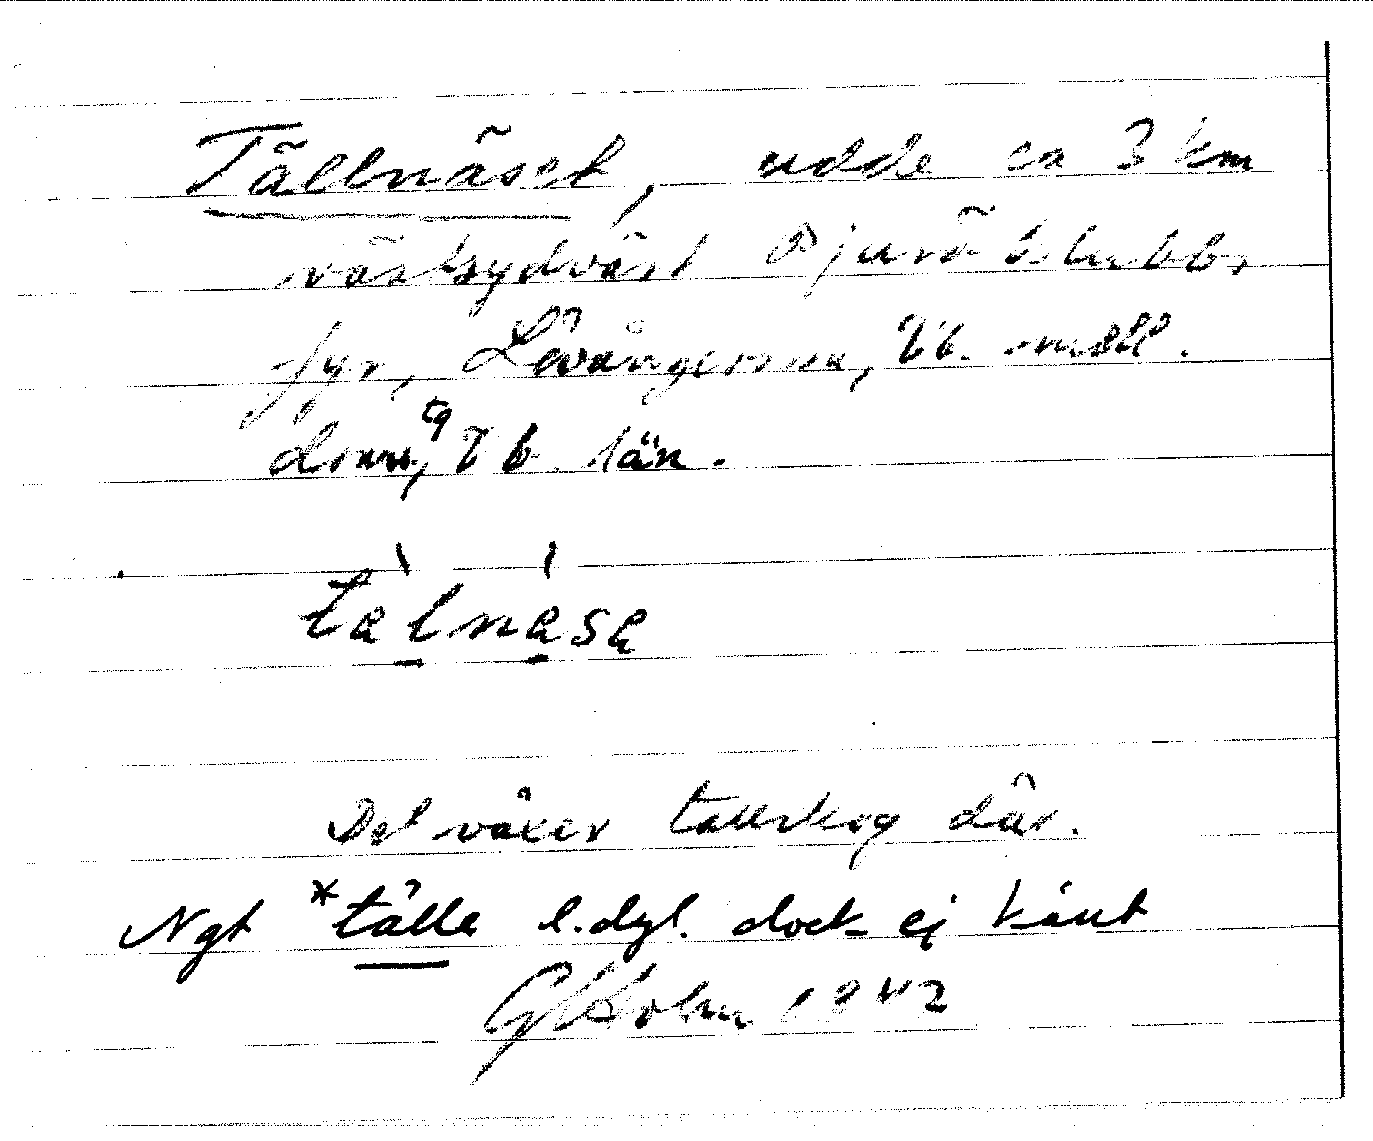 Tällnäset, udde ca 3 km
västsydväst Bjuröklubb,
fyr, Lövångers sn, Vb. mell.
doms, tg Vb. län.
tälnäsa
Det växer tallskog där.
Ngt *tälle l.dyl. dock ej känt
G Holm 1942